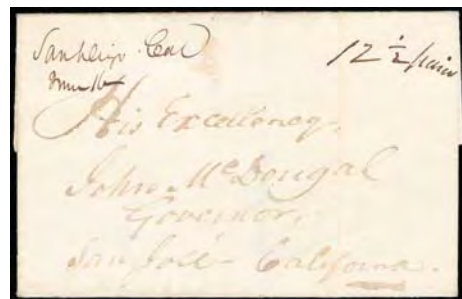 San Diego Cal
12½ paid
His Excellency,
John McDougal
Governor,
San José California.